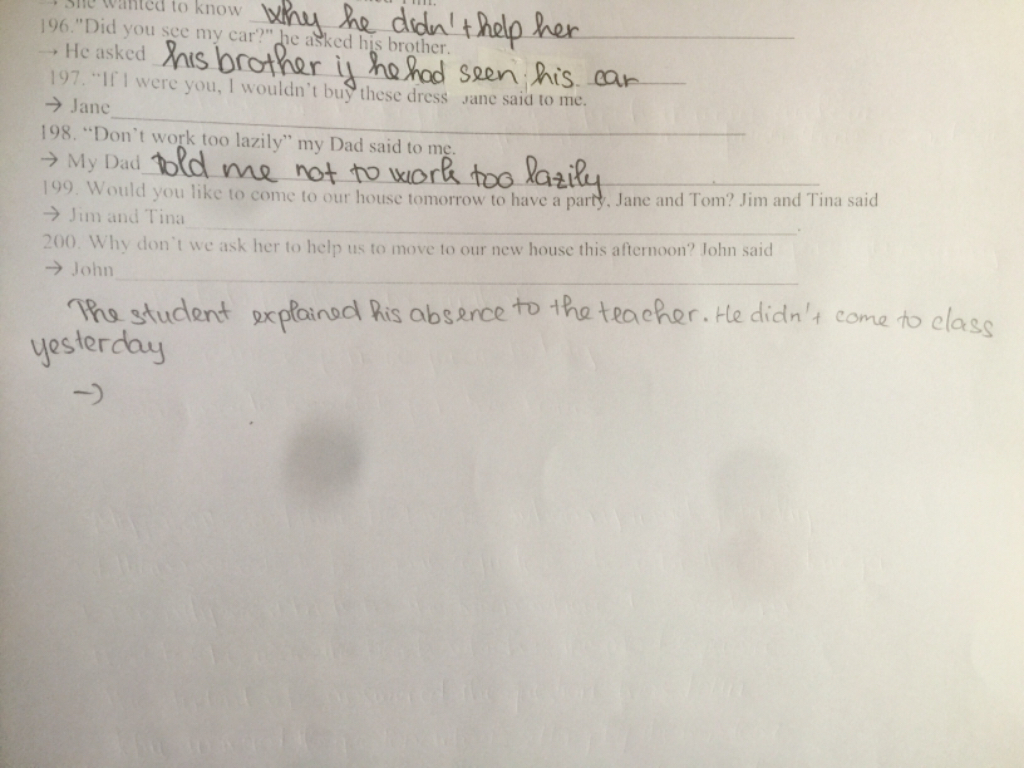 → She wanted to know why he didn't help her
196."Did you see my car?" he asked his brother.
→ He asked his brother if he had seen his car
197. "If I were you, I wouldn't buy these dress Jane said to me.
→ Jane
198. "Don't work too lazily" my Dad said to me.
→ My Dad told me not to work too lazily
199. Would you like to come to our house tomorrow to have a party, Jane and Tom? Jim and Tina said
→ Jim and Tina
200. Why don't we ask her to help us to move to our new house this afternoon? John said
→ John
The student explained his absence to the teacher. He didn't come to class
yesterday
→